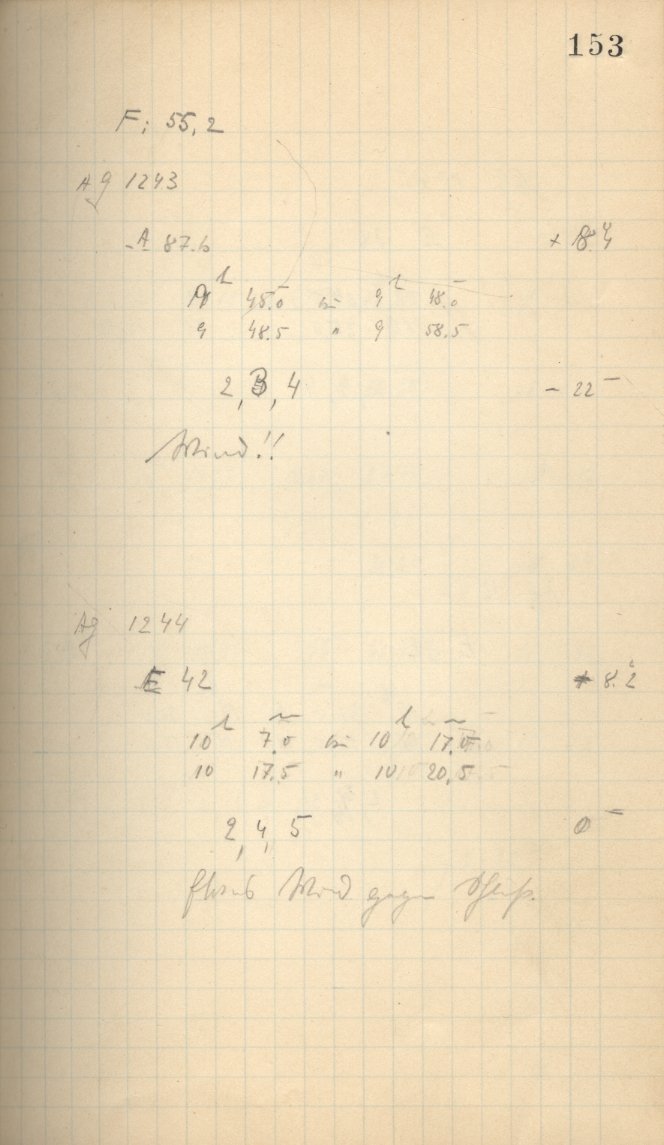 153
F: 55,2
Ag 1243
A 87.6 + 8.4
9h 45.0 bis 9h 48.0
9 48.5 " 9 58.5
2, 3, 4 - 22-
Wind!!
Ag 1244
E 42 + 8.2
10h 7.0 bis 10h 17.0
10 17.5 " 10 20.5
2, 4, 5 0-
Etwas Wind gegen